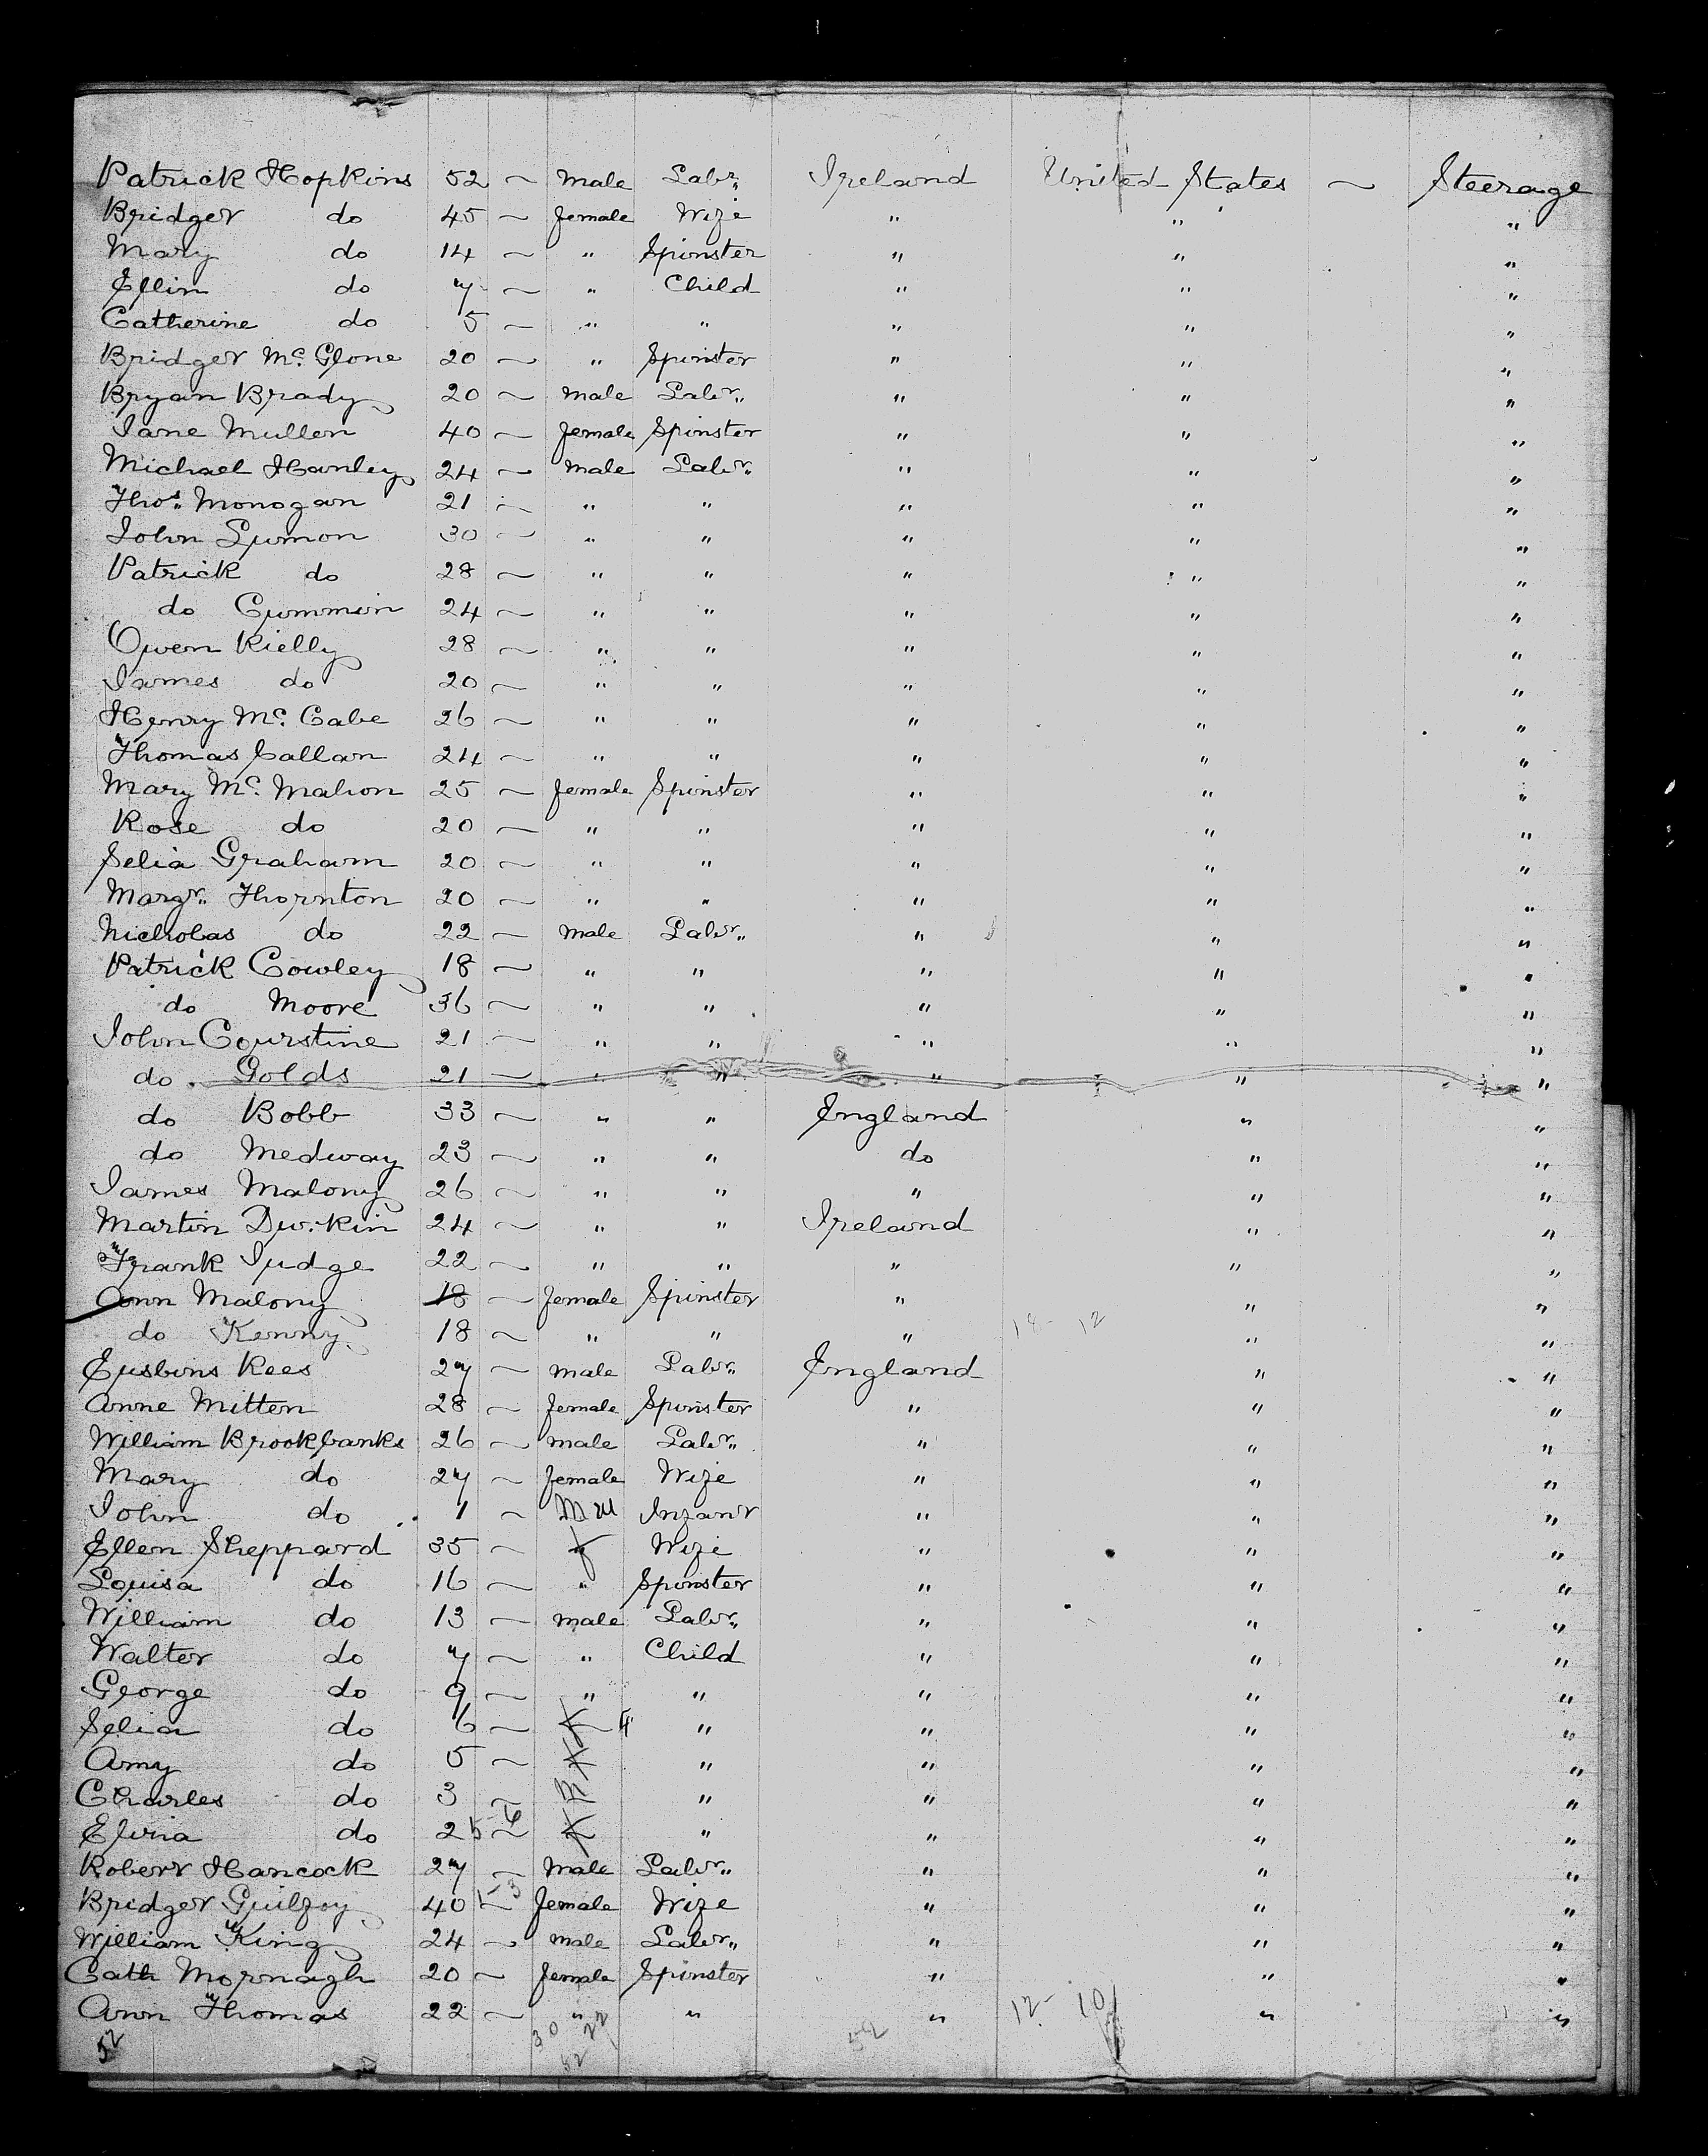 Patrick Hopkins 52 ~ male Labr. Ireland United States ~ Steerage
Bridget do 45 ~ female Wife " " "
Mary do 14 ~ " Spinster " " "
Ellin do 7 ~ " Child " " "
Catherine do 5 ~ " " " " "
Bridget Mc. Glone 20 ~ " Spinster " " "
Bryan Brady 20 ~ male Labr. " " "
Jane Mullen 40 ~ female Spinster " " "
Michael Hanley 24 ~ male Labr. " " "
Thos. Monogan 21 ~ " " " " "
John Lymon 30 ~ " " " " "
Patrick do 28 ~ " " " " "
do Cummin 24 ~ " " " " "
Owen Rielly 28 ~ " " " " "
James do 20 ~ " " " " "
Henry Mc. Cabe 26 ~ " " " " "
Thomas Callan 24 ~ " " " " "
Mary Mc. Mahon 25 ~ female Spinster " " "
Rose do 20 ~ " " " " "
Selia Graham 20 ~ " " " " "
Margt. Thornton 20 ~ " " " " "
Nicholas do 22 ~ male Labr. " " "
Patrick Cowley 18 ~ " " " " "
do Moore 36 ~ " " " " "
John Courstine 21 ~ " " " " "
do Golds 21 ~ " " " " "
do Bobb 33 ~ " " England " "
do Medway 23 ~ " " do " "
James Malony 26 ~ " " " " "
Martin Durkin 24 ~ " " Ireland " "
Frank Judge 22 ~ " " " " "
Ann Malony 18 ~ female Spinster " " "
do Kenny 18 ~ " " " 12 " "
Rees 27 ~ male Labr. England " "
Anne Mitten 28 ~ female Spinster " " "
William Brookbanks 26 ~ male Labr. " " "
Mary do 27 ~ female Wife " " "
John do 1 ~ Infant " " "
Ellen Sheppard 35 ~ f Wife " " "
Louisa do 16 ~ " Spinster " " "
William do 13 ~ male Labr. " " "
Walter do 7 ~ " Child " " "
George do 9 ~ " " " " "
Selia do 6 ~ " " " "
Amy do 5 ~ " " " "
Charles do 3 ~ " " " "
do 2 ~ " " " "
Robert Hancock 27 ~ Male Labr. " " "
Bridget Guilfoy 40 female Wife " " "
William King 24 ~ male Labr. " " "
Cath Mornagh 20 ~ female Spinster " " "
Ann Thomas 22 ~ " " " 12 - 10 " "
52 30 22 52
52